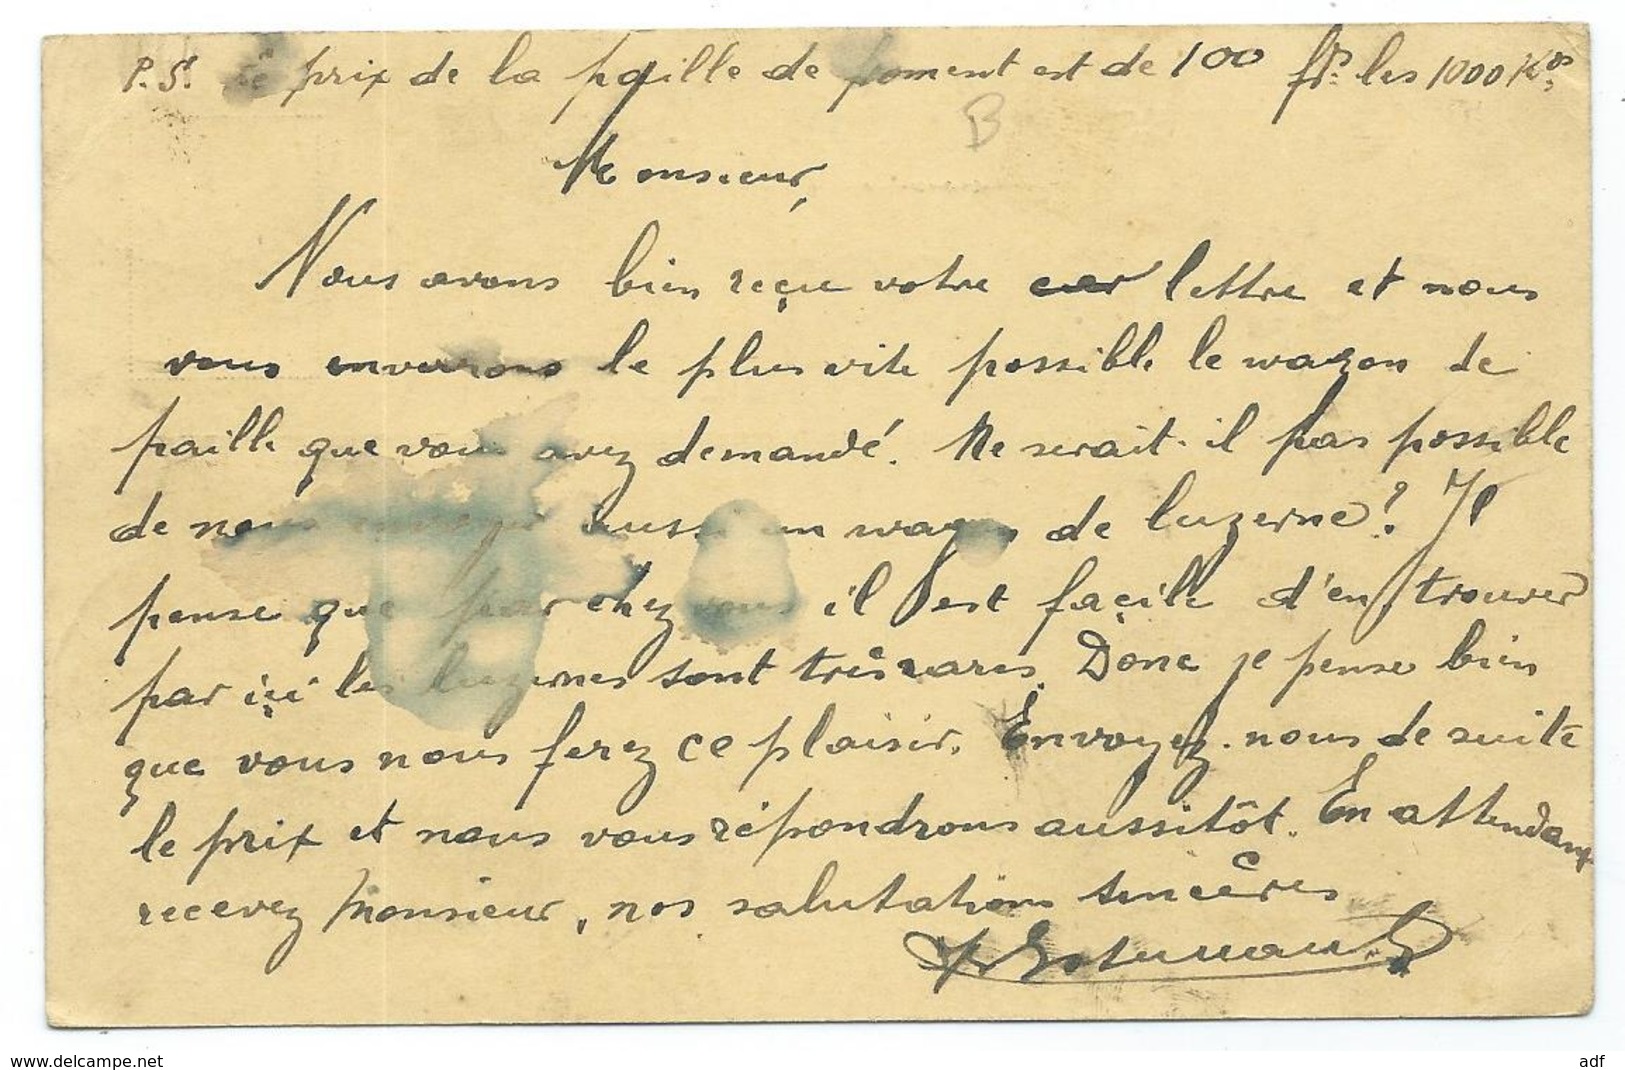 P.S. le prix de la paille de froment est de 100 frs. les 1000 Kos.
B
Monsieur,
Nous avons bien reçu votre car lettre et nous
vous enverrons le plus vite possible le wagon de
paille que vous avez demandé. Ne serait-il pas possible
de nous envoyer aussi un wagon de luzerne? Je
pense que par chez vous il est façile d'en trouver
par içi les luzernes sont très rares. Donc je pense bien
que vous nous ferez ce plaisir. Envoyez-nous de suite
le prix et nous vous répondrons aussitôt. En attendant
recevez Monsieur, nos salutations sincères
www.delcampe.net
adf